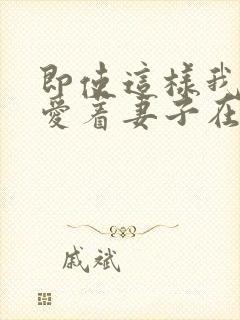 即使這樣我
愛着妻子在
戚斌